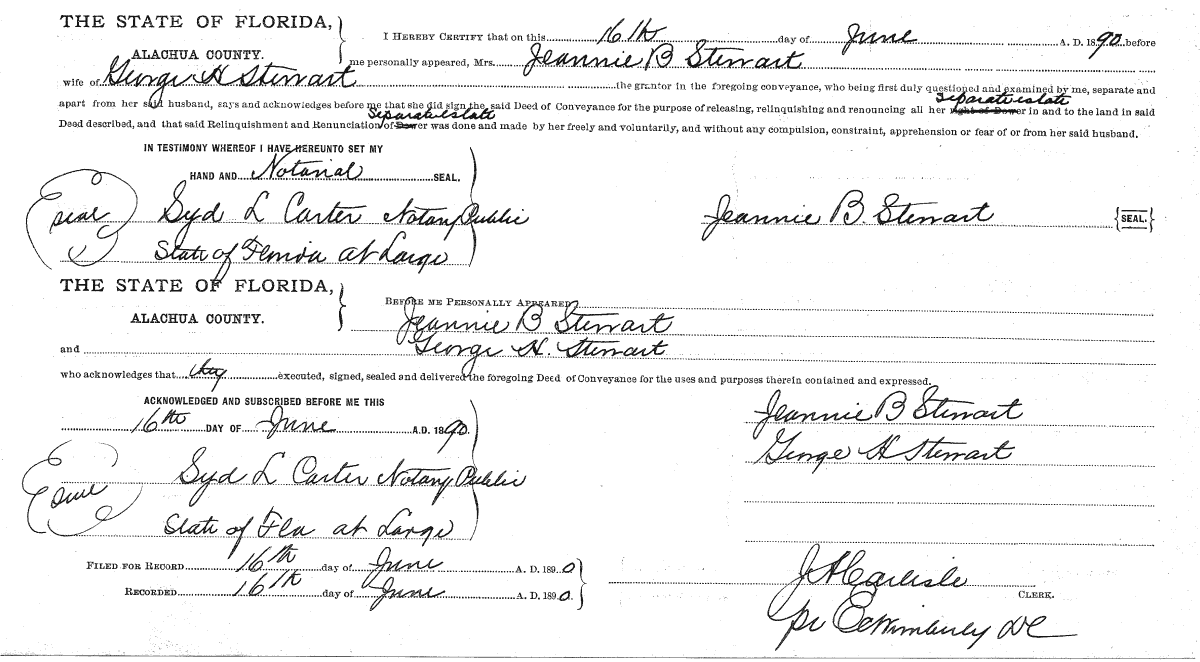 THE STATE OF FLORIDA,
ALACHUA COUNTY.
I HEREBY CERTIFY that on this 16th day of June A. D. 1890 before
me personally appeared, Mrs. Jeannie B Stewart
wife of George H Stewart the grantor in the foregoing conveyance, who being first duly questioned and examined by me, separate and
apart from her said husband, says and acknowledges before me that she did sign the said Deed of Conveyance for the purpose of releasing, relinquishing and renouncing all her right of Dower Separate estate in and to the land in said
Deed described, and that said Relinquishment and Renunciation of Dower Separate estate was done and made by her freely and voluntarily, and without any compulsion, constraint, apprehension or fear of or from her said husband.
IN TESTIMONY WHEREOF I HAVE HEREUNTO SET MY
HAND AND Notarial SEAL.
seal Syd L Carter Notary Public
State of Florida at Large
Jeannie B. Stewart {SEAL.}
THE STATE OF FLORIDA,
ALACHUA COUNTY.
BEFORE ME PERSONALLY APPEARED
Jeannie B Stewart
and George H. Stewart
who acknowledges that they executed, signed, sealed and delivered the foregoing Deed of Conveyance for the uses and purposes therein contained and expressed.
ACKNOWLEDGED AND SUBSCRIBED BEFORE ME THIS
16th DAY OF June A.D. 1890.
Jeannie B Stewart
George H Stewart
seal Syd L Carter Notary Public
State of Fla at Large
FILED FOR RECORD 16th day of June A. D. 1890
RECORDED 16th day of June A. D. 1890.
J H Carlisle CLERK.
pr E C Wimberly DC